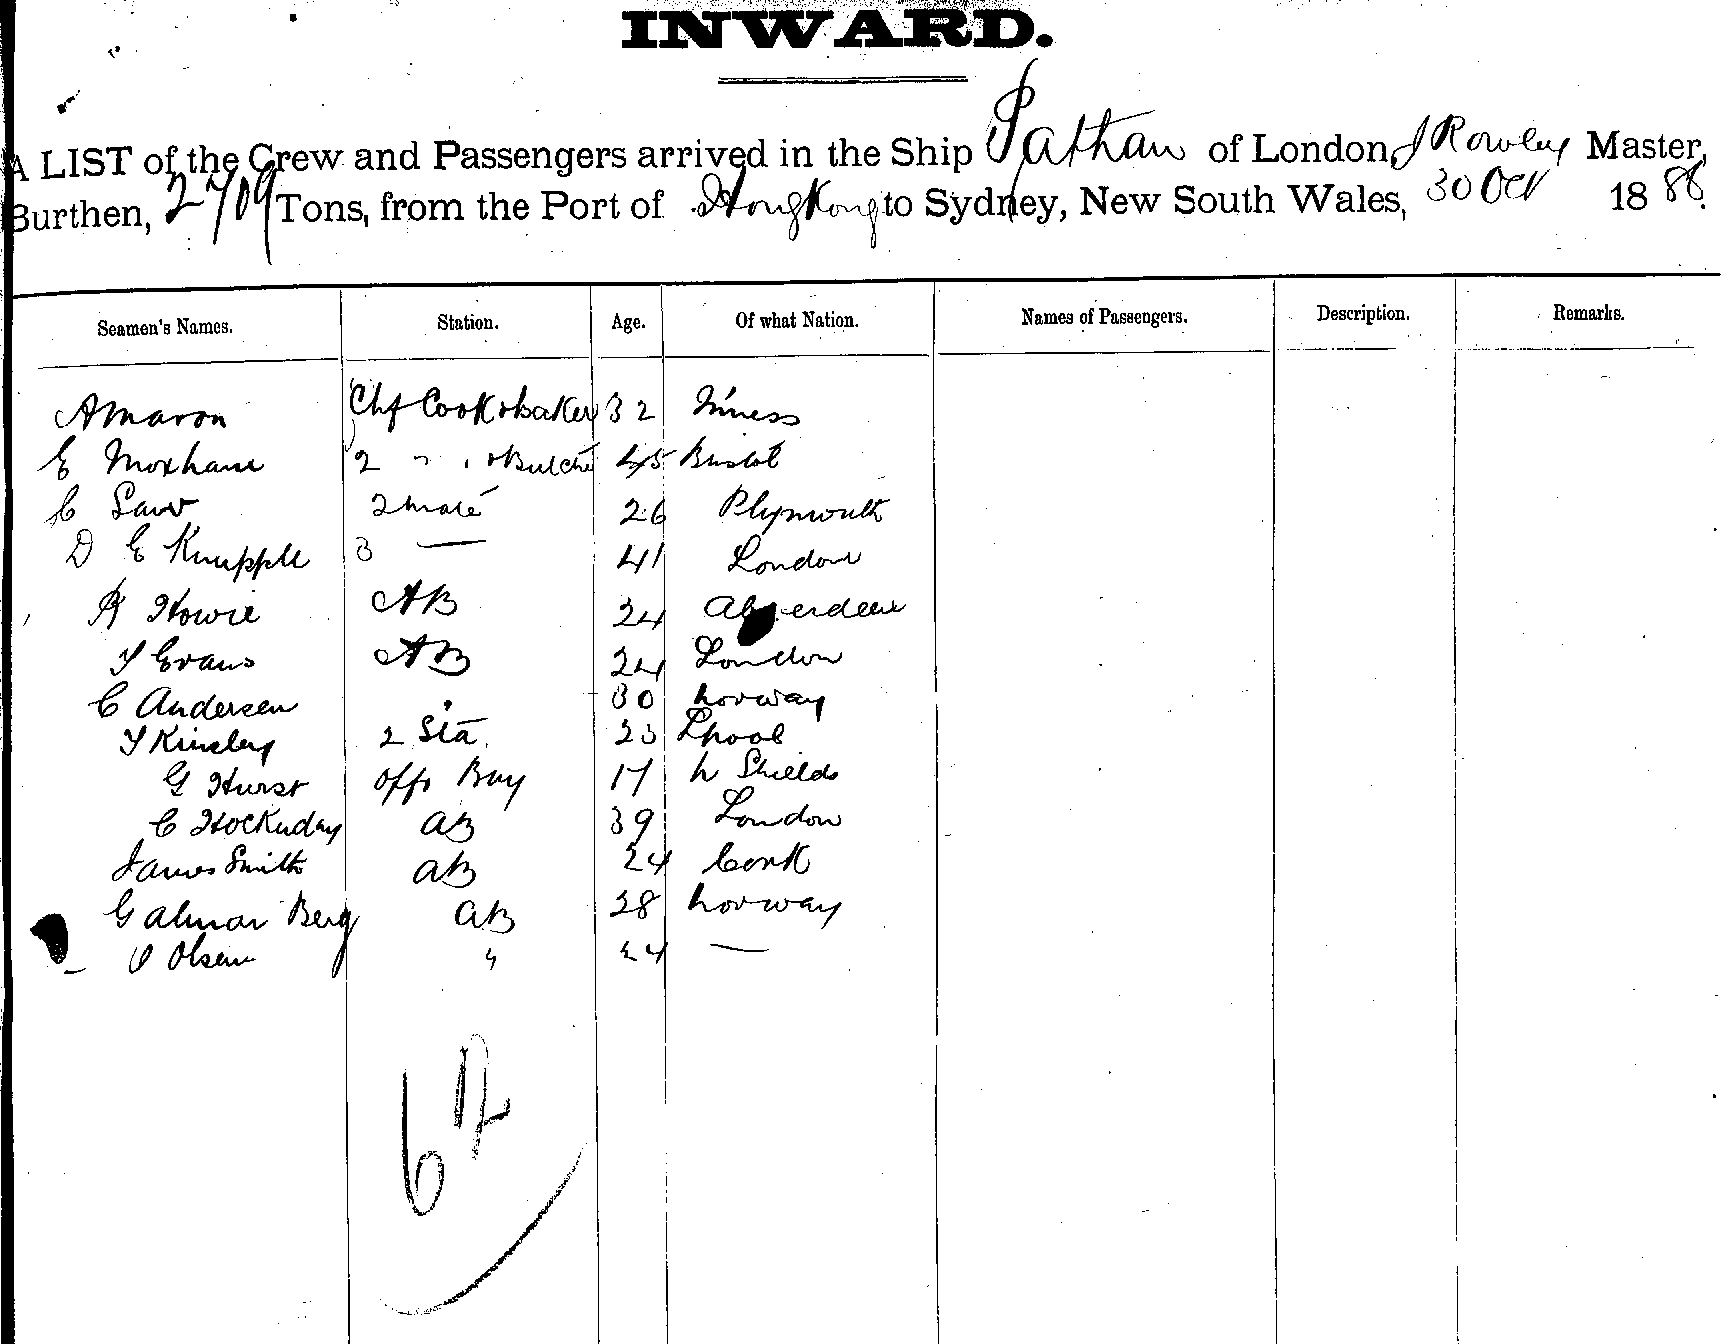 INWARD.
A LIST of the Crew and Passengers arrived in the Ship Pathan of London, J Rowley Master,
Burthen, 2709 Tons, from the Port of HongKong to Sydney, New South Wales, 30 Oct 1886.
Seamen's Names. Station. Age. Of what Nation. Names of Passengers. Description. Remarks.
A Maron Chf Cook & baker 32
E Moxham 2 " " & Butcher 45 Bristol
C Law 2 Mate 26 Plymouth
D E Knupple 3 — 41 London
R Howie AB 24 Aberdeen
T Evans AB 24 London
C Andersen 30 Norway
T Kinsley 2 Std 23 Lpool
G Hurst Offs Boy 17 N Shields
C Hockuday AB 39 London
James Smith AB 24 Cork
Galmar Berg AB 28 Norway
O Olsen " 24 —